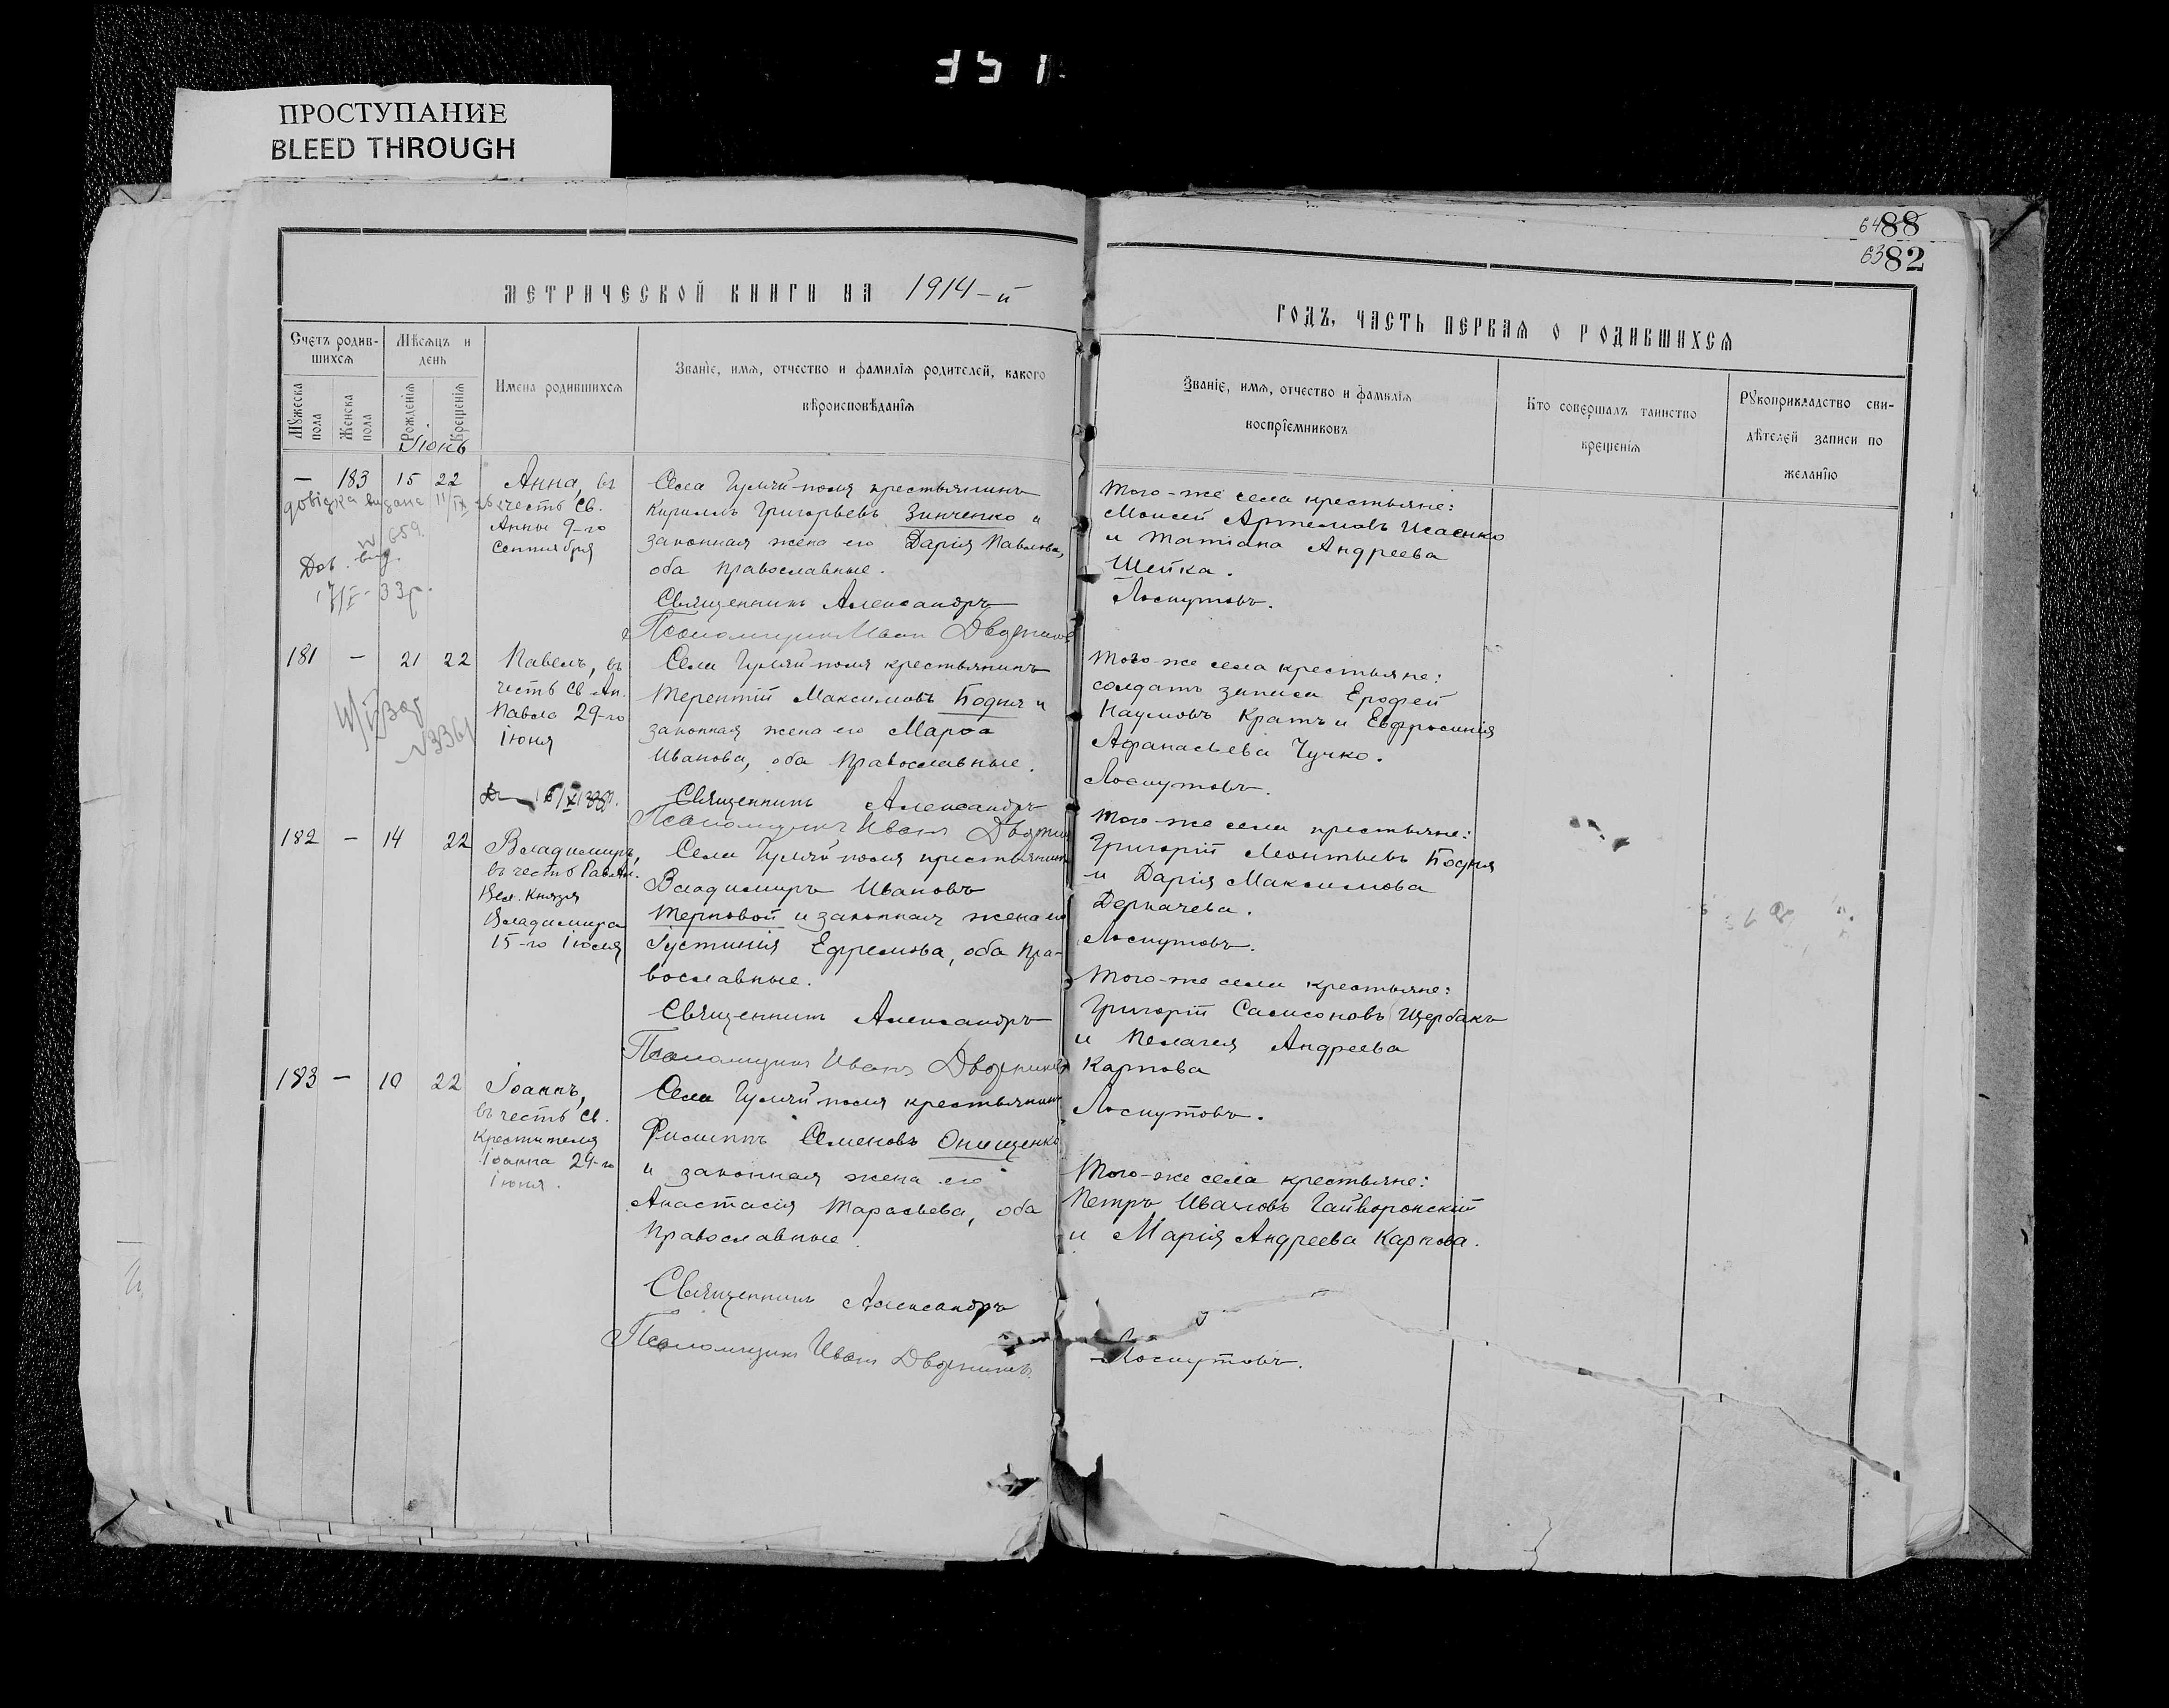 351
ПРОСТУПАНИЕ
BLEED THROUGH
6488
6382
МЕТРИЧЕСКОЙ КНИГИ НА 1914-й
Счетъ родив-
шихся
Мужеска
пола
Женска
пола
Мѣсяцъ и
день
Рожденія
Крещенія
Имена родившихся
Званіе, имя, отчество и фамилія родителей, какого
вѣроисповѣданія
Іюнь
— 183 15 22
довідка видана 11/IX 26
N 659
Дов. вид.
33р.
Анна, въ
честь Св.
Анны 9-го
Сентября
Села Гуляй-поля крестьянинъ
Кириллъ Григорьевъ Зинченко и
законная жена его Дарія Павлова,
оба православные.
Священникъ Александръ
Псаломщикъ Иванъ Дворников
181 — 21 22
N3361
Павелъ, въ
честь Св Ап.
Павла 29-го
Іюня
Села Гуляй-поля крестьянинъ
Терентій Максимовъ Бодня и
законная жена его Марѳа
Иванова, оба православные.
Священникъ Александръ
Псаломщикъ Иванъ
182 — 14 22
Владимиръ,
въ честь Равноап.
Вел. Князя
Владимира
15-го Іюля
Села Гуляй-поля крестьянинъ
Владимиръ Ивановъ
Терновой и законная жена его
Іустинія Ефремова, оба пра-
вославные.
Священникъ Александръ
Псаломщикъ Иванъ Дворниковъ
183 — 10 22
Іоаннъ,
въ честь Св.
Крестителя
Іоанна 29-го
Іюня.
Села Гуляй-поля крестьянинъ
Филиппъ Семеновъ Онищенко
и законная жена его
Анастасія Тарасьева, оба
православные
Священникъ Александръ
Псаломщикъ Иванъ Дворниковъ
ГОДЪ, ЧАСТЬ ПЕРВАЯ О РОДИВШИХСЯ
Званіе, имя, отчество и фамилія
воспріемниковъ
Кто совершалъ таинство
крещенія
Рукоприкладство сви-
дѣтелей записи по
желанію
Того-же села крестьяне:
Моисей Артемовъ Исаенко
и Татіана Андреева
Шейка.
Лоскутовъ.
Того-же села крестьяне:
солдатъ запаса Ерофей
Наумовъ Кратъ и Евфросинія
Афанасьева Чучко.
Лоскутовъ.
Того-же села крестьяне:
Григорій Леонтьевъ Бодня
и Дарія Максимова
Деркачева.
Лоскутовъ.
Того-же села крестьяне:
Григорій Самсоновъ Щербакъ
и Пелагея Андреева
Карпова
Лоскутовъ.
Того-же села крестьяне:
Петръ Ивановъ Гайворонскій
и Марія Андреева Карпова.
Лоскутовъ.